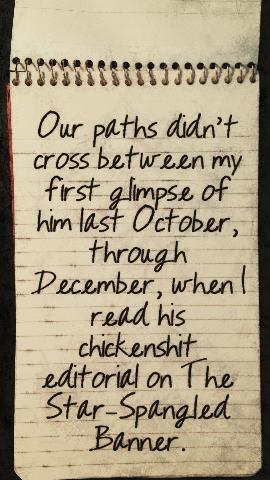 Our paths didn't
cross between my
first glimpse of
him last October,
through
December, when I
read his
chickenshit
editorial on The
Star-Spangled
Banner.